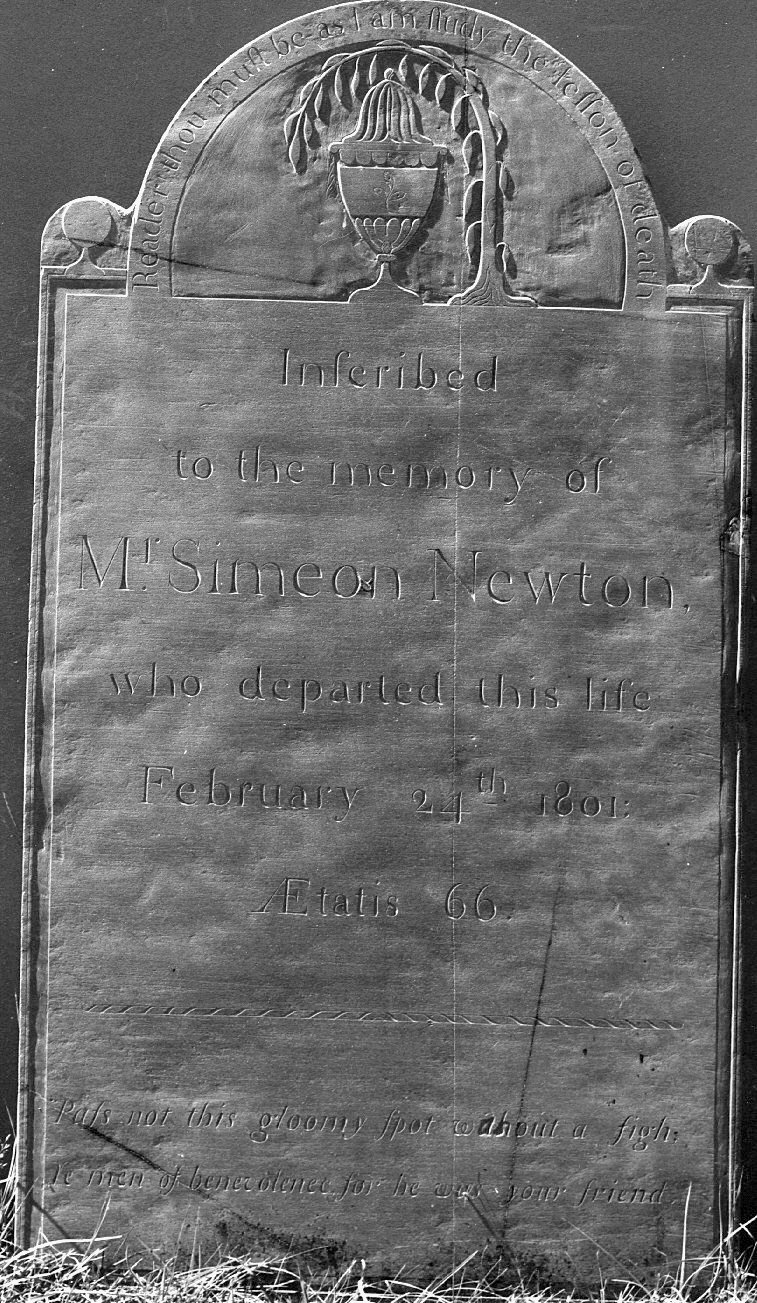 Reader thou muſt be as I am ſtudy the leſſon of death
Inſcribed
to the memory of
Mr. Simeon Newton,
who departed this life
February 24th 1801:
Ætatis 66.
Paſs not this gloomy ſpot without a ſigh;
Ye men of benevolence, for he was your friend.